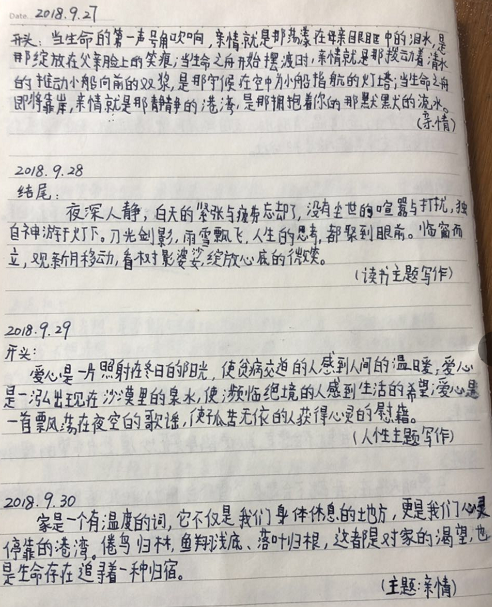 Date 2018.9.27
开头: 当生命的第一声号角吹响,亲情就是那荡漾在母亲眼眶中的泪水,是
那绽放在父亲脸上的笑容;当生命之舟开始摆渡时,亲情就是那拨动着清水
的推动小船向前的双桨,是那守候在空中为小船指航的灯塔;当生命之舟
即将靠岸,亲情就是那静静的港湾,是那拥抱着你的那默默的流水。
(亲情)
2018.9.28
结尾:
夜深人静,白天的紧张与疲劳忘却了,没有尘世的喧嚣与打扰,独
自神游于灯下。刀光剑影,雨雪飘飞,人生的思考,都聚到眼前。临窗而
立,观新月移动,看树影婆娑,绽放心底的微笑。
(读书主题写作)
2018.9.29
开头:
爱心是一片照射在冬日的阳光,使贫病交迫的人感到人间的温暖;爱心
是一泓出现在沙漠里的泉水,使濒临绝境的人感到生活的希望;爱心是
一首飘荡在夜空的歌谣,使孤苦无依的人获得心灵的慰藉。
(人性主题写作)
2018.9.30
家是一个有温度的词,它不仅是我们身体休息的地方,更是我们心灵
停靠的港湾。倦鸟归林,鱼翔浅底、落叶归根,这都是对家的渴望,也
是生命存在追寻着一种归宿。
(主题:亲情)